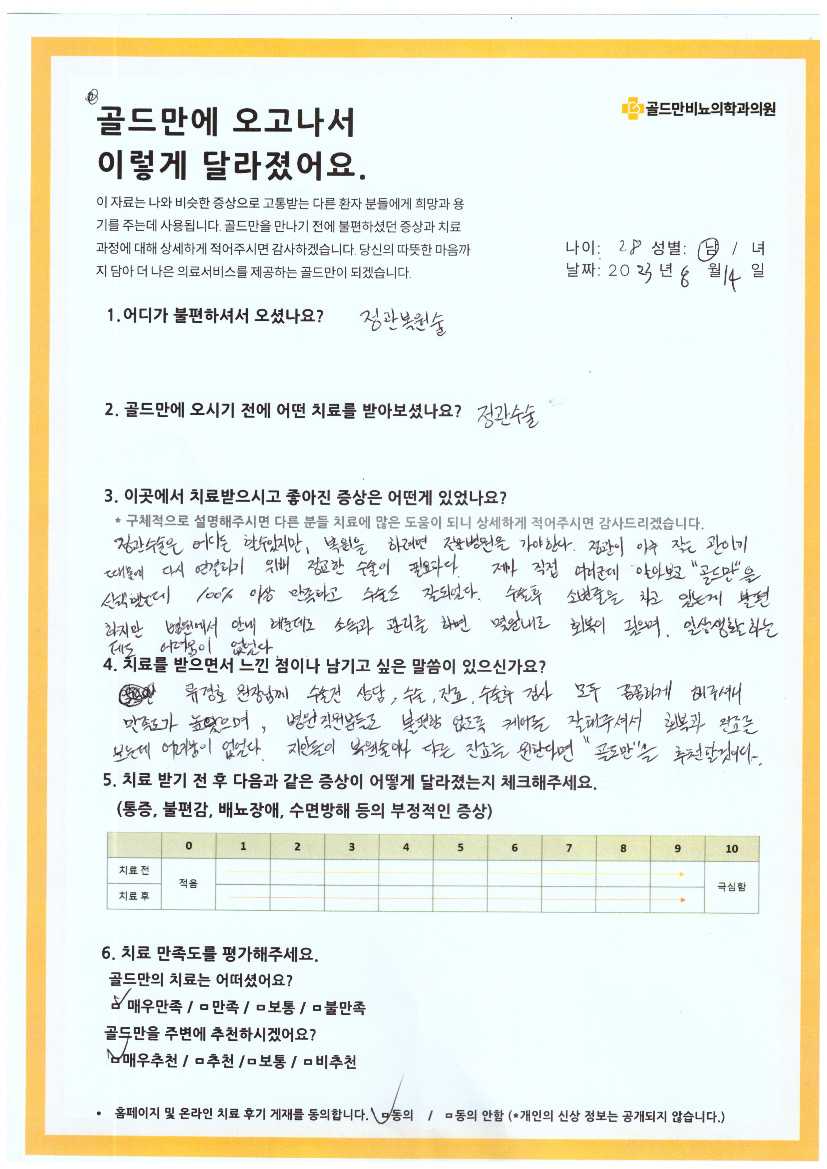 골드만에 오고나서
이렇게 달라졌어요.
골드만비뇨의학과의원
이 자료는 나와 비슷한 증상으로 고통받는 다른 환자 분들에게 희망과 용
기를 주는데 사용됩니다. 골드만을 만나기 전에 불편하셨던 증상과 치료
과정에 대해 상세하게 적어주시면 감사하겠습니다. 당신의 따뜻한 마음까
지 담아 더 나은 의료서비스를 제공하는 골드만이 되겠습니다.
나이: 28 성별: 남 / 녀
날짜: 2023년 8 월 14 일
1.어디가 불편하셔서 오셨나요? 정관복원술
2. 골드만에 오시기 전에 어떤 치료를 받아보셨나요? 정관수술
3. 이곳에서 치료받으시고 좋아진 증상은 어떤게 있었나요?
* 구체적으로 설명해주시면 다른 분들 치료에 많은 도움이 되니 상세하게 적어주시면 감사드리겠습니다.
정관수술은 어디든 할수있지만, 복원을 하려면 전문병원을 가야한다. 정관이 아주 작은 관이기
때문에 다시 연결하기 위해 정교한 수술이 필요하다. 제가 직접 여러군데 알아보고 "골드만"을
선택했는데 100% 이상 만족하고 수술도 잘되었다. 수술후 소변줄을 차고 있는게 불편
하지만 병원에서 안내 해준데로 소독과 관리를 하면 몇일내로 회복이 되며, 일상생활하는
데도 어려움이 없었다
4. 치료를 받으면서 느낀 점이나 남기고 싶은 말씀이 있으신가요?
류경호 원장님께 수술전 상담, 수술, 진료, 수술후 검사 모두 꼼꼼하게 해주셔서
만족도가 높았으며, 병원직원분들도 불편함 없도록 케어를 잘해주셔서 회복과 진료를
보는데 어려움이 없었다. 지인들이 복원술이나 다른 진료를 원한다면 "골드만"을 추천할것이다.
5. 치료 받기 전 후 다음과 같은 증상이 어떻게 달라졌는지 체크해주세요.
(통증, 불편감, 배뇨장애, 수면방해 등의 부정적인 증상)
0 1 2 3 4 5 6 7 8 9 10
치료 전
적음
극심함
치료 후
6. 치료 만족도를 평가해주세요.
골드만의 치료는 어떠셨어요?
매우만족 / 만족 / 보통 / 불만족
골드만을 주변에 추천하시겠어요?
매우추천 / 추천 / 보통 / 비추천
• 홈페이지 및 온라인 치료 후기 게재를 동의합니다. 동의 / 동의 안함 (*개인의 신상 정보는 공개되지 않습니다.)